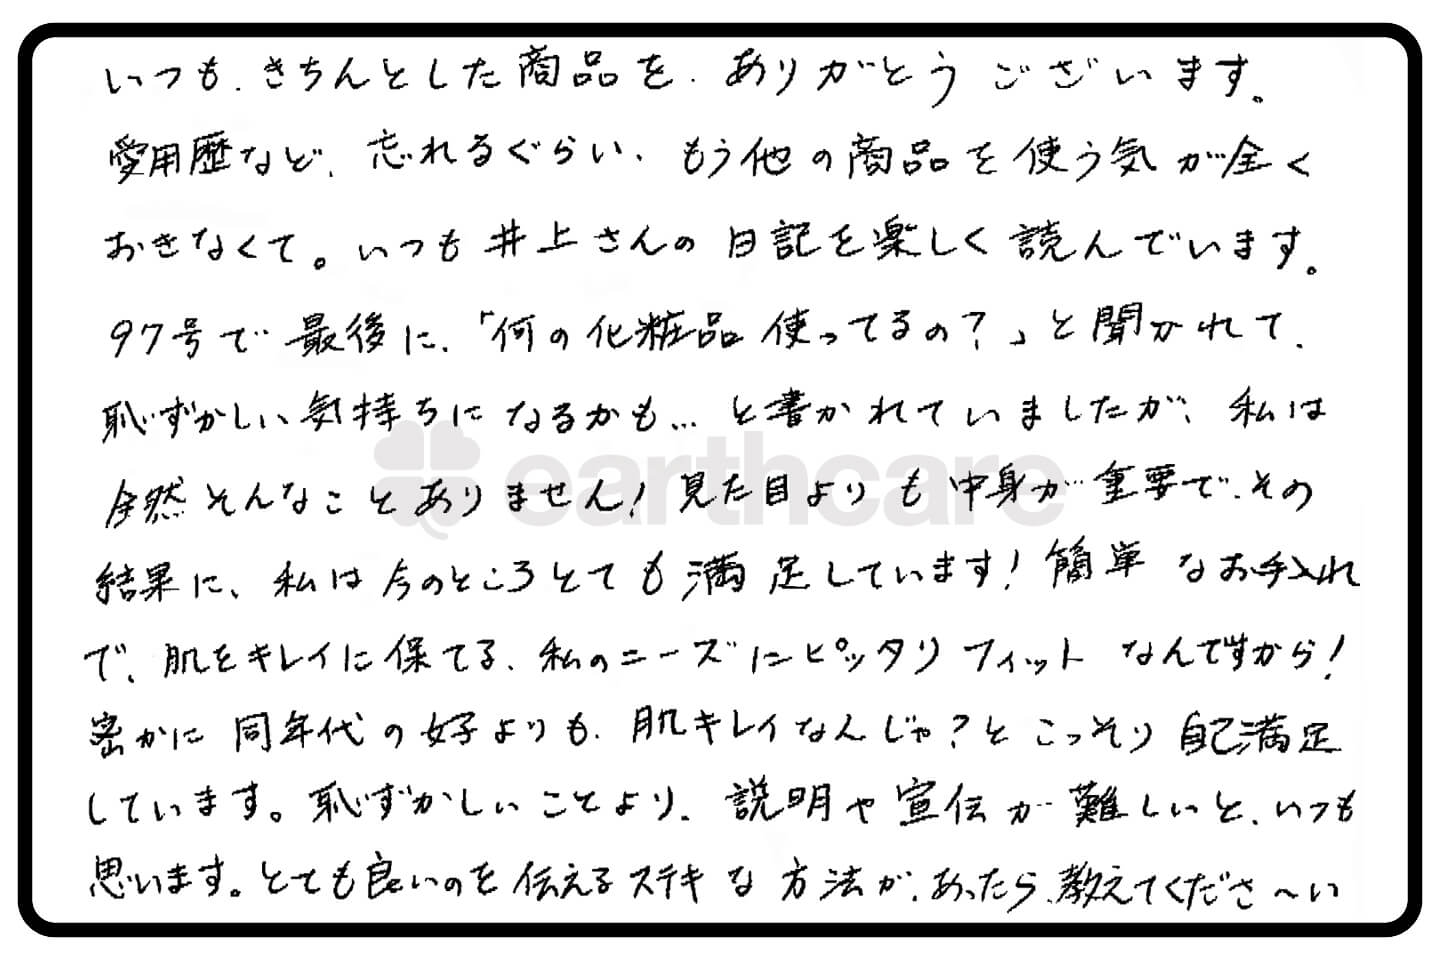 いつも、きちんとした商品を、ありがとうございます。
愛用歴など、忘れるぐらい、もう他の商品を使う気が全く
おきなくて。いつも井上さんの日記を楽しく読んでいます。
97号で最後に、「何の化粧品使ってるの？」と聞かれて、
恥ずかしい気持ちになるかも…と書かれていましたが、私は
全然そんなことありません！見た目よりも中身が重要で、その
結果に、私は今のところとても満足しています！簡単なお手入れ
で、肌をキレイに保てる、私のニーズにピッタリフィットなんですから！
密かに同年代の女子よりも、肌キレイなんじゃ？とこっそり自己満足
しています。恥ずかしいことより、説明や宣伝が難しいと、いつも
思います。とても良いのを伝えるステキな方法が、あったら、教えてくださ〜い
earthcare